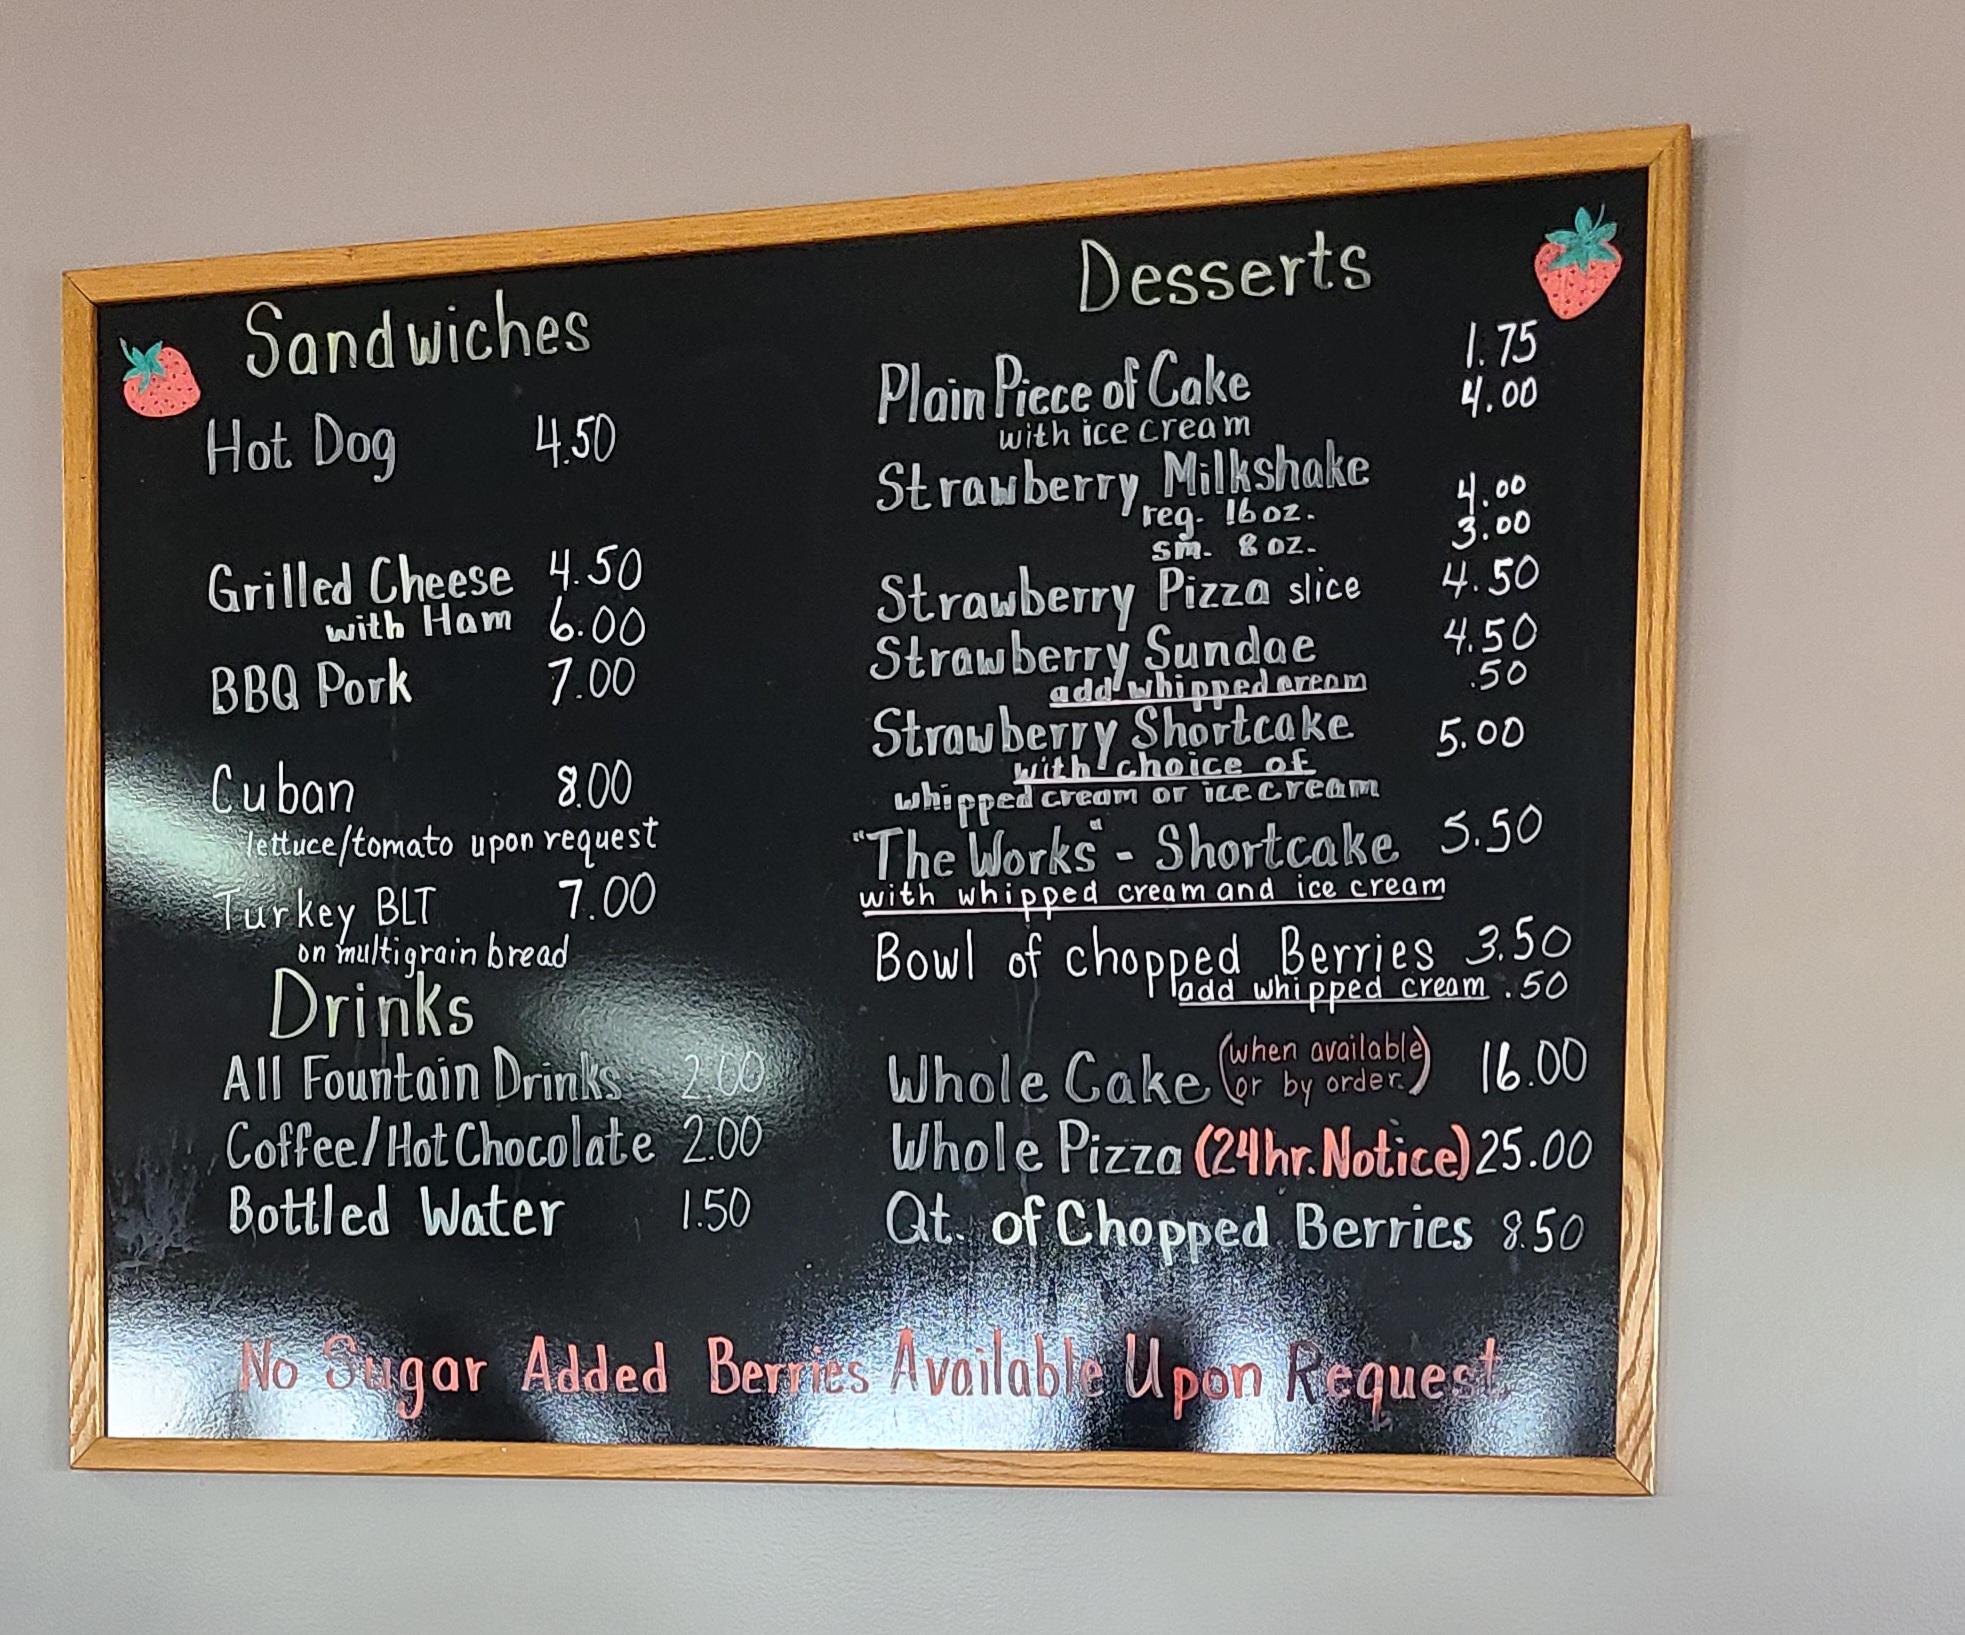 Sandwiches
Hot Dog 4.50
Grilled Cheese 4.50
with Ham 6.00
BBQ Pork 7.00
Cuban 8.00
lettuce/tomato upon request
Turkey BLT 7.00
on multigrain bread
Drinks
All Fountain Drinks 2.00
Coffee/Hot Chocolate 2.00
Bottled Water 1.50
Desserts
Plain Piece of Cake 1.75
with ice cream 4.00
Strawberry Milkshake
reg. 16 oz. 4.00
sm. 8 oz. 3.00
Strawberry Pizza slice 4.50
Strawberry Sundae 4.50
add whipped cream .50
Strawberry Shortcake 5.00
with choice of
whipped cream or ice cream
"The Works" - Shortcake 5.50
with whipped cream and ice cream
Bowl of chopped Berries 3.50
add whipped cream .50
Whole Cake (when available 16.00
or by order.)
Whole Pizza (24hr. Notice) 25.00
Qt. of Chopped Berries 8.50
No Sugar Added Berries Available Upon Request